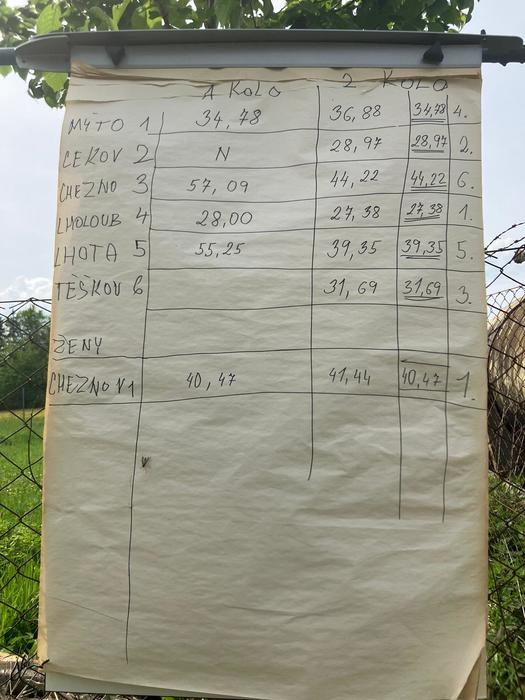 1 KOLO 2 KOLO
MÝTO 1 34,78 36,88 34,78 4.
CEKOV 2 N 28,97 28,97 2.
CHEZNO 3 57,09 44,22 44,22 6.
LHOLOUB 4 28,00 27,38 27,38 1.
LHOTA 5 55,25 39,35 39,35 5.
TĚŠKOV 6 31,69 31,69 3.
ŽENY
CHEZNOV 1 40,47 41,44 40,47 1.